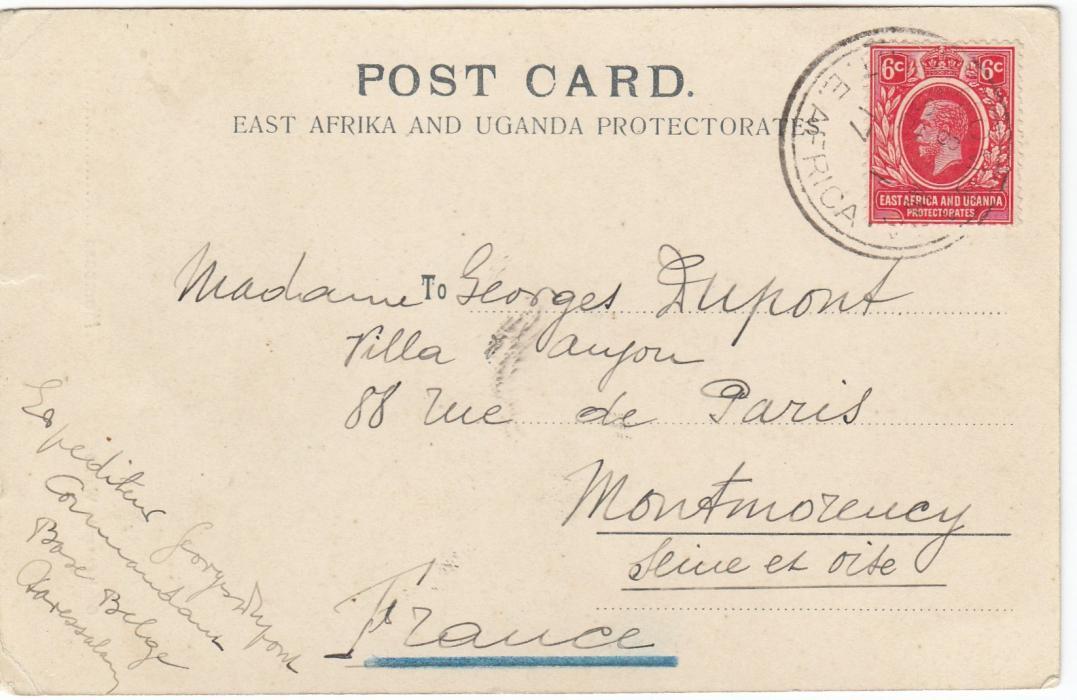 POST CARD.
EAST AFRIKA AND UGANDA PROTECTORATES
6c 6c
EAST AFRICA AND UGANDA
PROTECTORATES
E. AFRICA
Madame To Georges Dupont
Villa anjou
88 rue de Paris
Montmorency
Seine et Oise
France
Expediteur Georges Dupont
Commandant
Base Belge
Daressalam